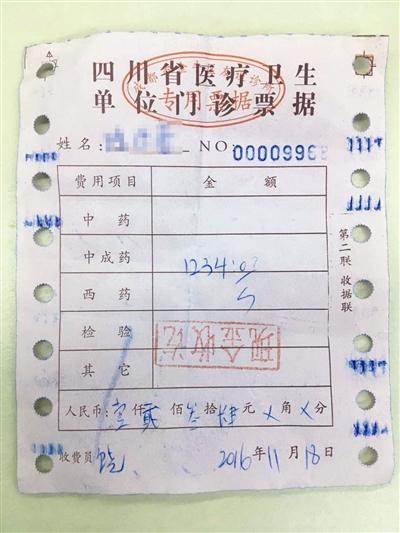 四川省医疗卫生
单位门诊票据
专用票据
姓名: NO:0000996
费用项目 金额
中药
中成药 1234:
西药
检验
现金收讫
其它
人民币:壹仟贰佰叁拾肆元X角X分
收费员 2016年11月18日
第二联 收据联